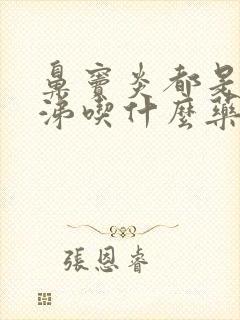 鼻竇炎都是
涕喫什麼藥
張恩睿